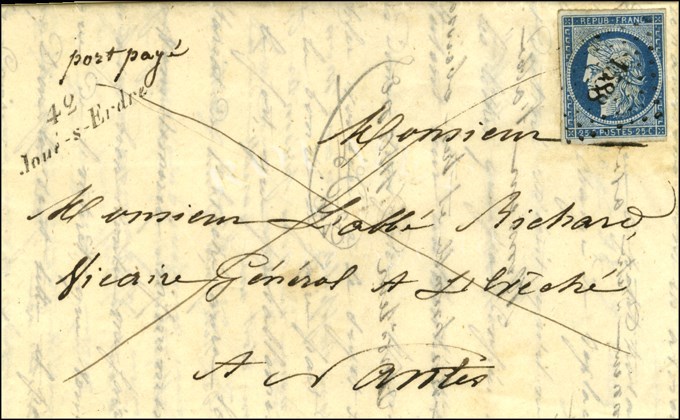 port payé
42
Joué-s-Erdre
REPUB. FRANC.
25 POSTES 25 C
Monsieur
Monsieur L'abbé Richard,
Vicaire Général A L'Evêché
A Nantes